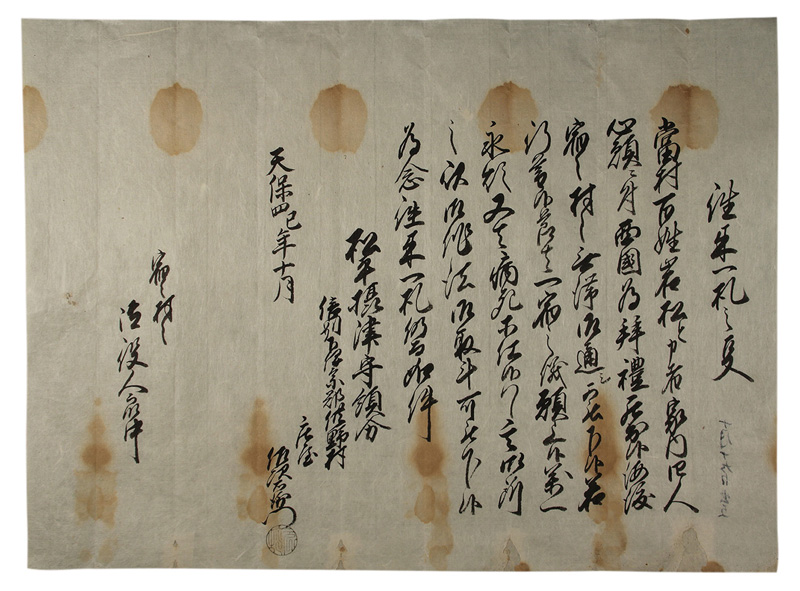 往来一札之事
當村百姓岩松と申者家内四人
心願ニ付西國為拝禮罷出候海陸
宿々村々無滞御通し可被下候若
行暮候節者一宿之儀願上候万一
永煩又者病死等仕候ハヽ其御所
之以御作法御取斗可被下候
為念往来一札仍而如件
松平攝津守領分
信州高井郡佐野村
庄屋
天保四巳年十月
宿々村々
御役人衆中